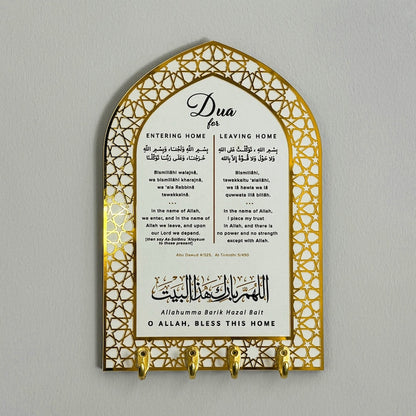 Dua
for
ENTERING HOME
بِسْمِ اللَّهِ وَلَجْنَا، وَبِسْمِ اللَّهِ
خَرَجْنَا، وَعَلَى رَبِّنَا تَوَكَّلْنَا
Bismillâhi walajnâ,
wa bismillâhi kharajnâ,
wa 'ala Rabbinâ
tawakkalnâ.
...
In the name of Allah,
we enter, and in the name of
Allah we leave, and upon
our Lord we depend.
[then say As-Salâmu 'Alaykum
to those present]
LEAVING HOME
بِسْمِ اللَّهِ ، تَوَكَّلْتُ عَلَى اللَّهِ
وَلَا حَوْلَ وَلَا قُوَّةَ إِلَّا بِاللَّهِ
Bismillâhi,
tawakkaltu 'alallâhi,
wa lâ hawla wa lâ
quwwata illâ billâh.
...
In the name of Allah,
I place my trust
in Allah, and there is
no power and no strength
except with Allah.
Abu Dawud 4/325, At Tirmidhi 5/490
اللهم بارك هذا البيت
Allahumma Barik Hazal Bait
O ALLAH, BLESS THIS HOME